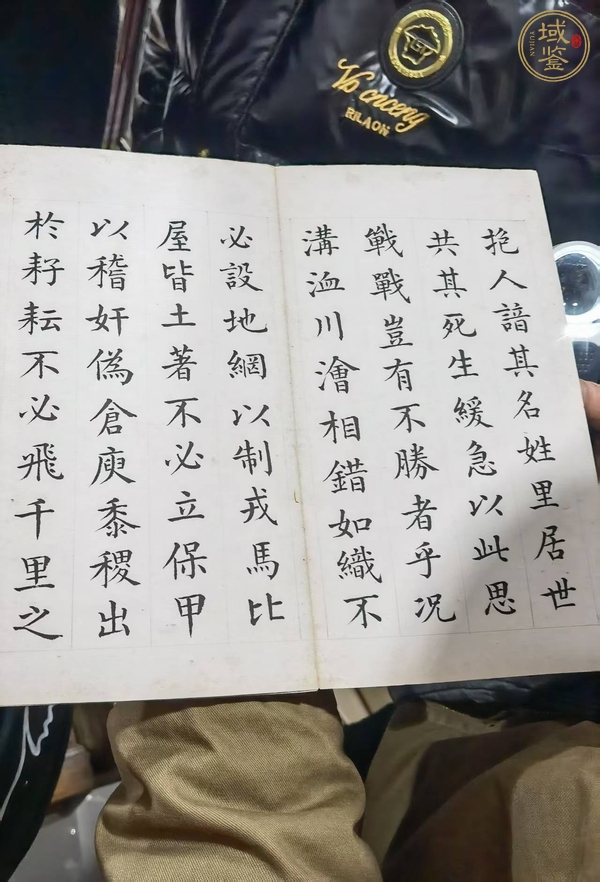 域鉴
YUJIAN
Vo cnceng
RILAON
人諳其名姓里居世
共其死生緩急以此思
戰戰豈有不勝者乎況
溝洫川澮相錯如織不
必設地網以制戎馬比
屋皆土著不必立保甲
以稽奸偽倉庾黍稷出
於耔耘不必飛千里之